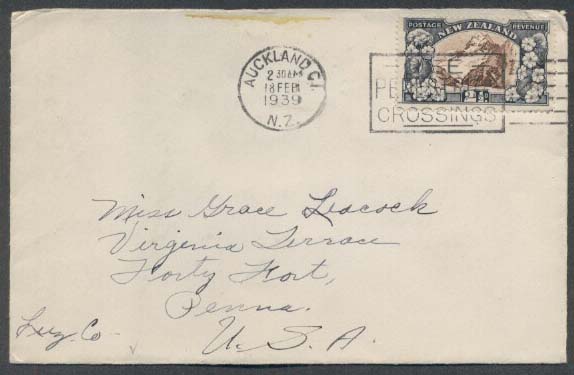 POSTAGE REVENUE
NEW ZEALAND
AUCKLAND C.1
2 30AM
18 FEB
1939
N.Z.
CROSSINGS
Miss Grace Leacock
Virginia Terrace
Forty Fort,
Penna.
Luz. Co.
U.S.A.